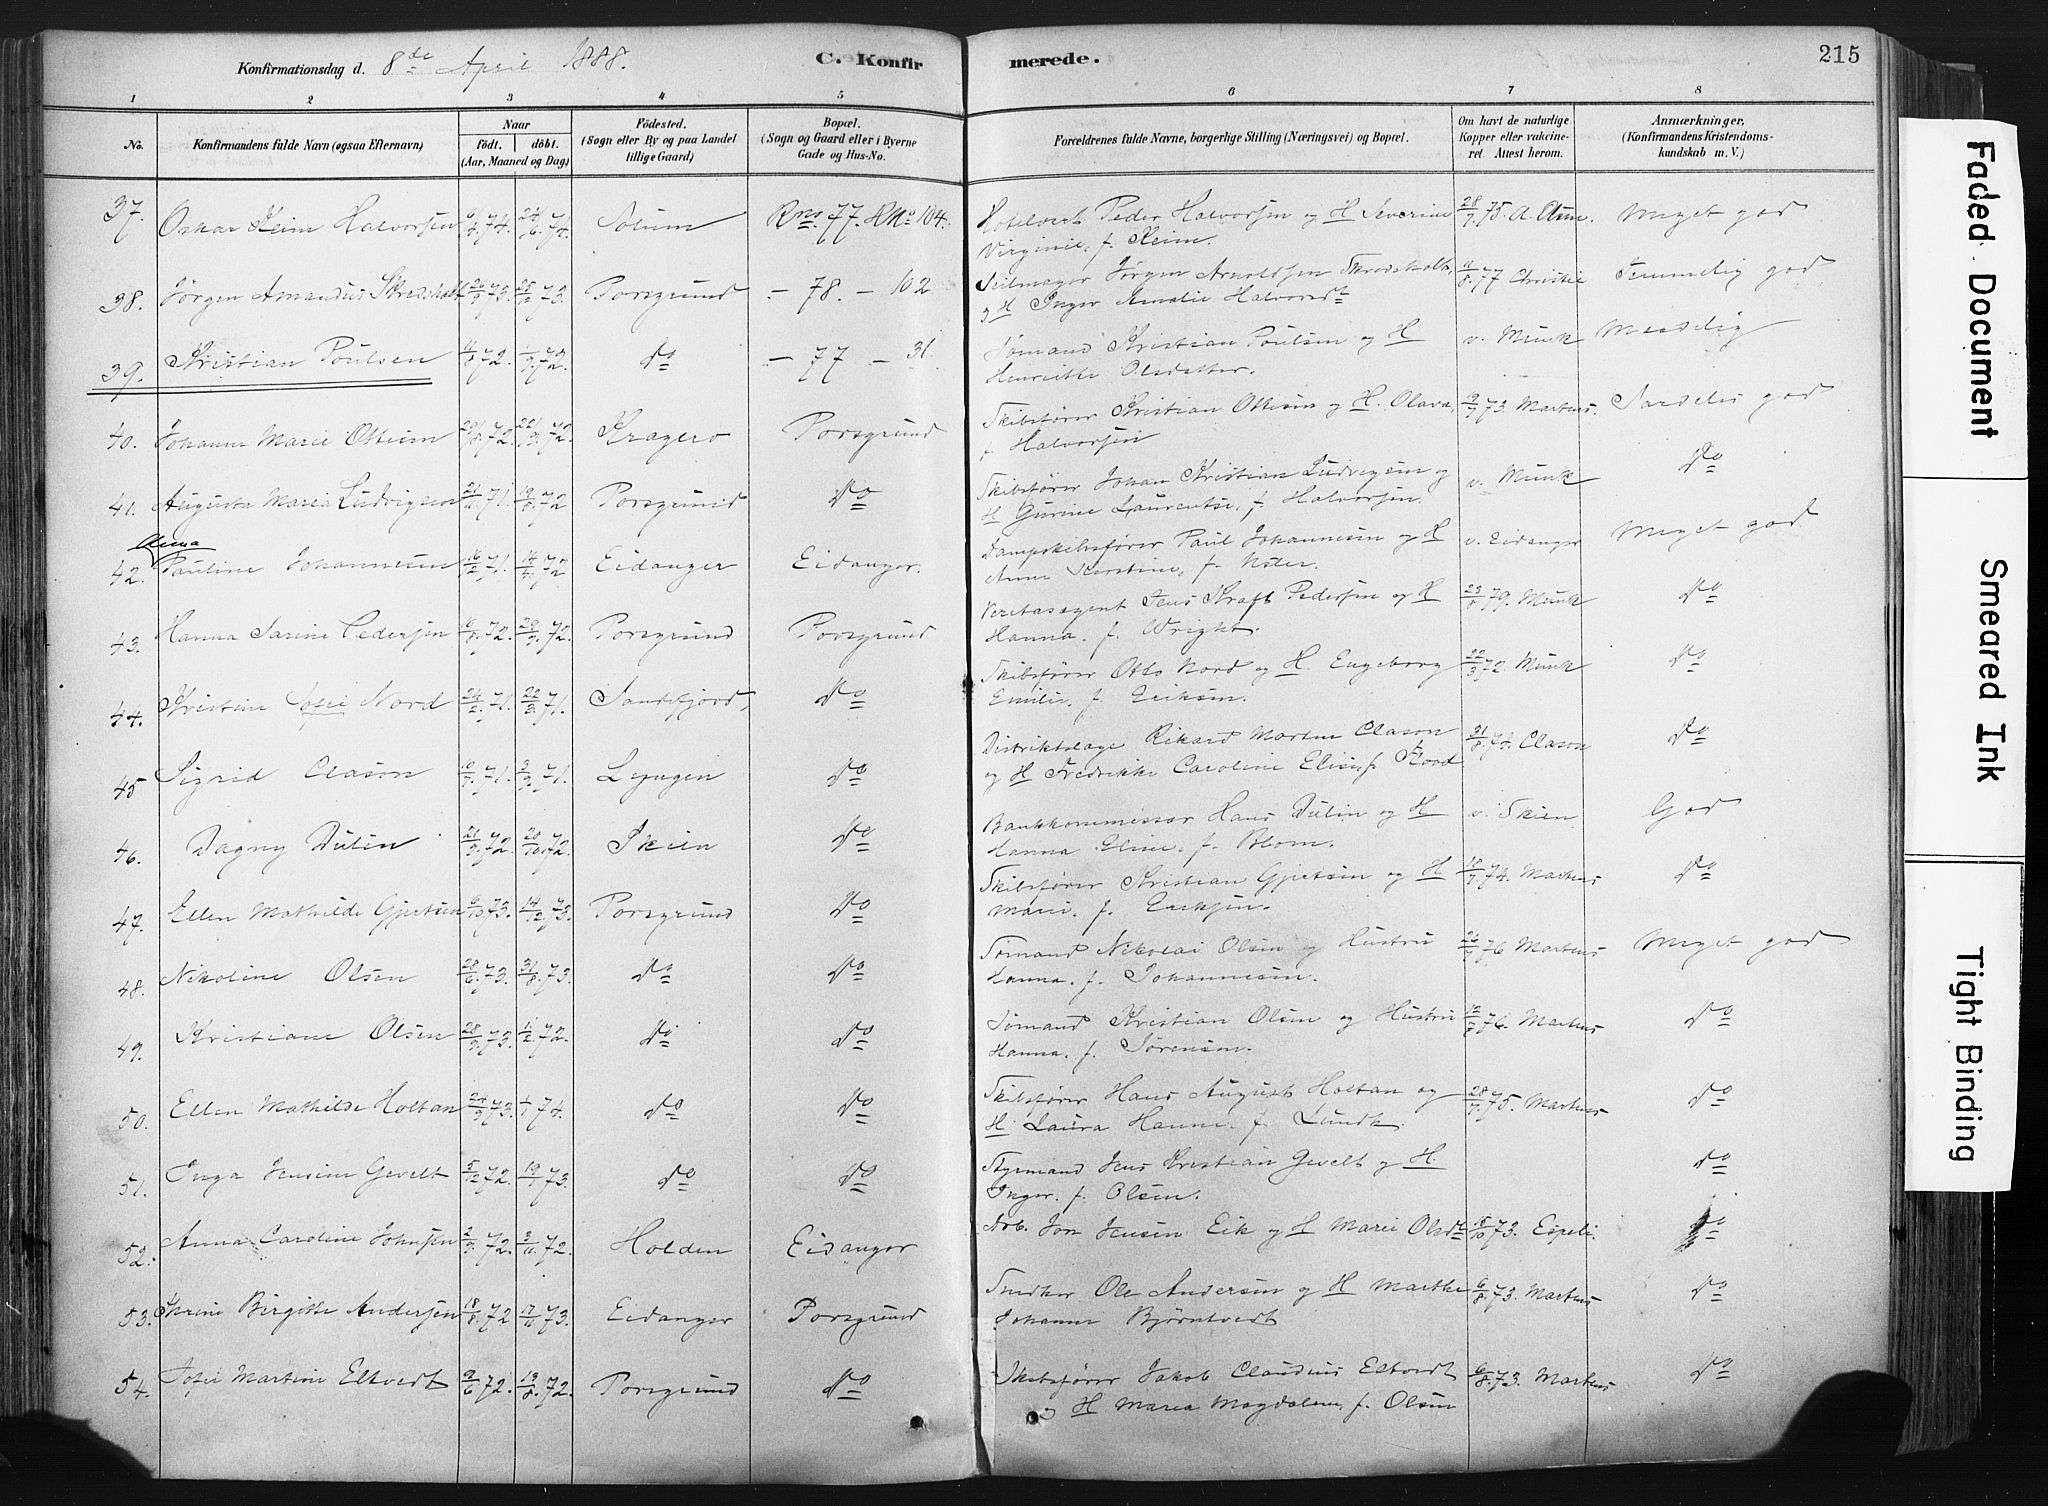 Konfirmationsdag d. 8de April 1888. C. Konfirmerede. 215
1 2 3 4 5 6 7 8
No. Konfirmandens fulde Navn (ogsaa Efternavn) Naar Födt. döbt. (Aar, Maaned og Dag) Födested. (Sogn eller By og paa Landet tillige Gaard) Bopæl. (Sogn og Gaard eller i Byerne Gade og Hus-No. Forældrenes fulde Navne, borgerlige Stilling (Næringsvei) og Bopæl. Om havt de naturlige Kopper eller vakcineret. Attest herom. Anmærkninger. (Konfirmandens Kristendomskundskab m. V.)
37. Oskar Keim Halvorsen 74. 24/6 74. Solum Rns. 77. HNo 104. Hotelvert Peder Halvorsen og H Severine 28/7 75. A. Olsen Meget god
Virginie, f. Keim.
38. Jörgen Amandus Skredshall 73. 73. Porsgrund - 78. - 102. Seilmager Jörgen Arnoldsen Skredshall, 11/8 77 Christie Temmelig god
og H Inger Amalie Halvorsdt
39. Kristian Poulsen 72. 72. do - 77 - 31. Sømand Kristian Poulsen og H v. Munk Maadelig
Henriette Olsdatter.
40. Johanne Marie Ottesen 72. 72. Kragerø Porsgrund Skibsfører Kristian Ottesen og H. Olava, 73. Martens. Særdeles god
f. Halvorsen
41. Augusta Maria Ludvigsen 71. 72 Porsgrund do Skibsfører Johan Kristian Ludvigsen og v. Munk do
H Gurine Laurentse, f. Halvorsen.
Anna
42. Pauline Johannesen 71. 72 Eidanger Eidanger. Dampskibsfører Paul Johannesen og H v. Eidanger Meget god
Anne Kirstine, f.
43. Hanna Sarine Pedersen 72. 72. Porsgrund Porsgrund Veritasagent Jens Kraft Pedersen og H 79. Munk do
Hanna. f. Wright.
44. Kristine Sofie Nord 71. 71. Sandefjord, do Skibsfører Otto Nord og H. Engeborg 22/3 72. Munk do
Emilie, f. Eriksen.
45 Sigrid Clason 71. 71. Lyngen do Distriktslæge Rikard Morten Clason 31/8 Clason do
og H Fredrikke Caroline Elise, f. Flood
46. Dagny Dulin 21/9 72. 20/10 72. Skien do Bankkommissær Hans Dulin og H v. Skien God
Hanna Eline. f. Blom.
47. Ellen Mathilde Gjertsen 73. 14/12 73. Porsgrund do Skibsfører Kristian Gjertsen og H 18/7 74. Martens do
Marie. f. Eriksen.
48. Nikoline Olsen 28/6 73. 31/8 73. do do Sømand Nikolai Olsen og Hustru 76 Martens Meget god
Hanna. f. Johannesen.
49. Kristiane Olsen 73. 72. do do Sømand Kristian Olsen og Hustru 12/7 76. Martens do
Hanna. f. Sørensen.
50. Ellen Mathilde Holtan 24/9 73. 1/1 74. do do Skibsfører Hans August Holtan og 28/7 75. Martens do
H. Laura Hanne. f. Lundh.
51. Inga Jensine Gevelt 5/12 72. 19/1 73. do do Styrmand Jens Kristian Gevelt og H. do
Inger. f. Olsen.
52. Anna Caroline Johnsen 2/9 72. 3/11 72. Holden Eidanger Arb. Jon Jensen Eik og H Marie Olsdt 18/10 73. Espeli. do
53. Thrine Birgitte Andersen 18/8 72 73. Eidanger Porsgrund Snedker Ole Andersen og H Marthe 6/8 73. Martens do
Johanne Bjørntvedt
54. Sofie Martine Eltvedt 2/6 72. 19/8 72. Porsgrund do Skibsfører Jakob Claudius Eltvedt 6/8 73. Martens do
og H Maren Magdalene, f. Olsen
Faded Document
Smeared Ink
Tight Binding